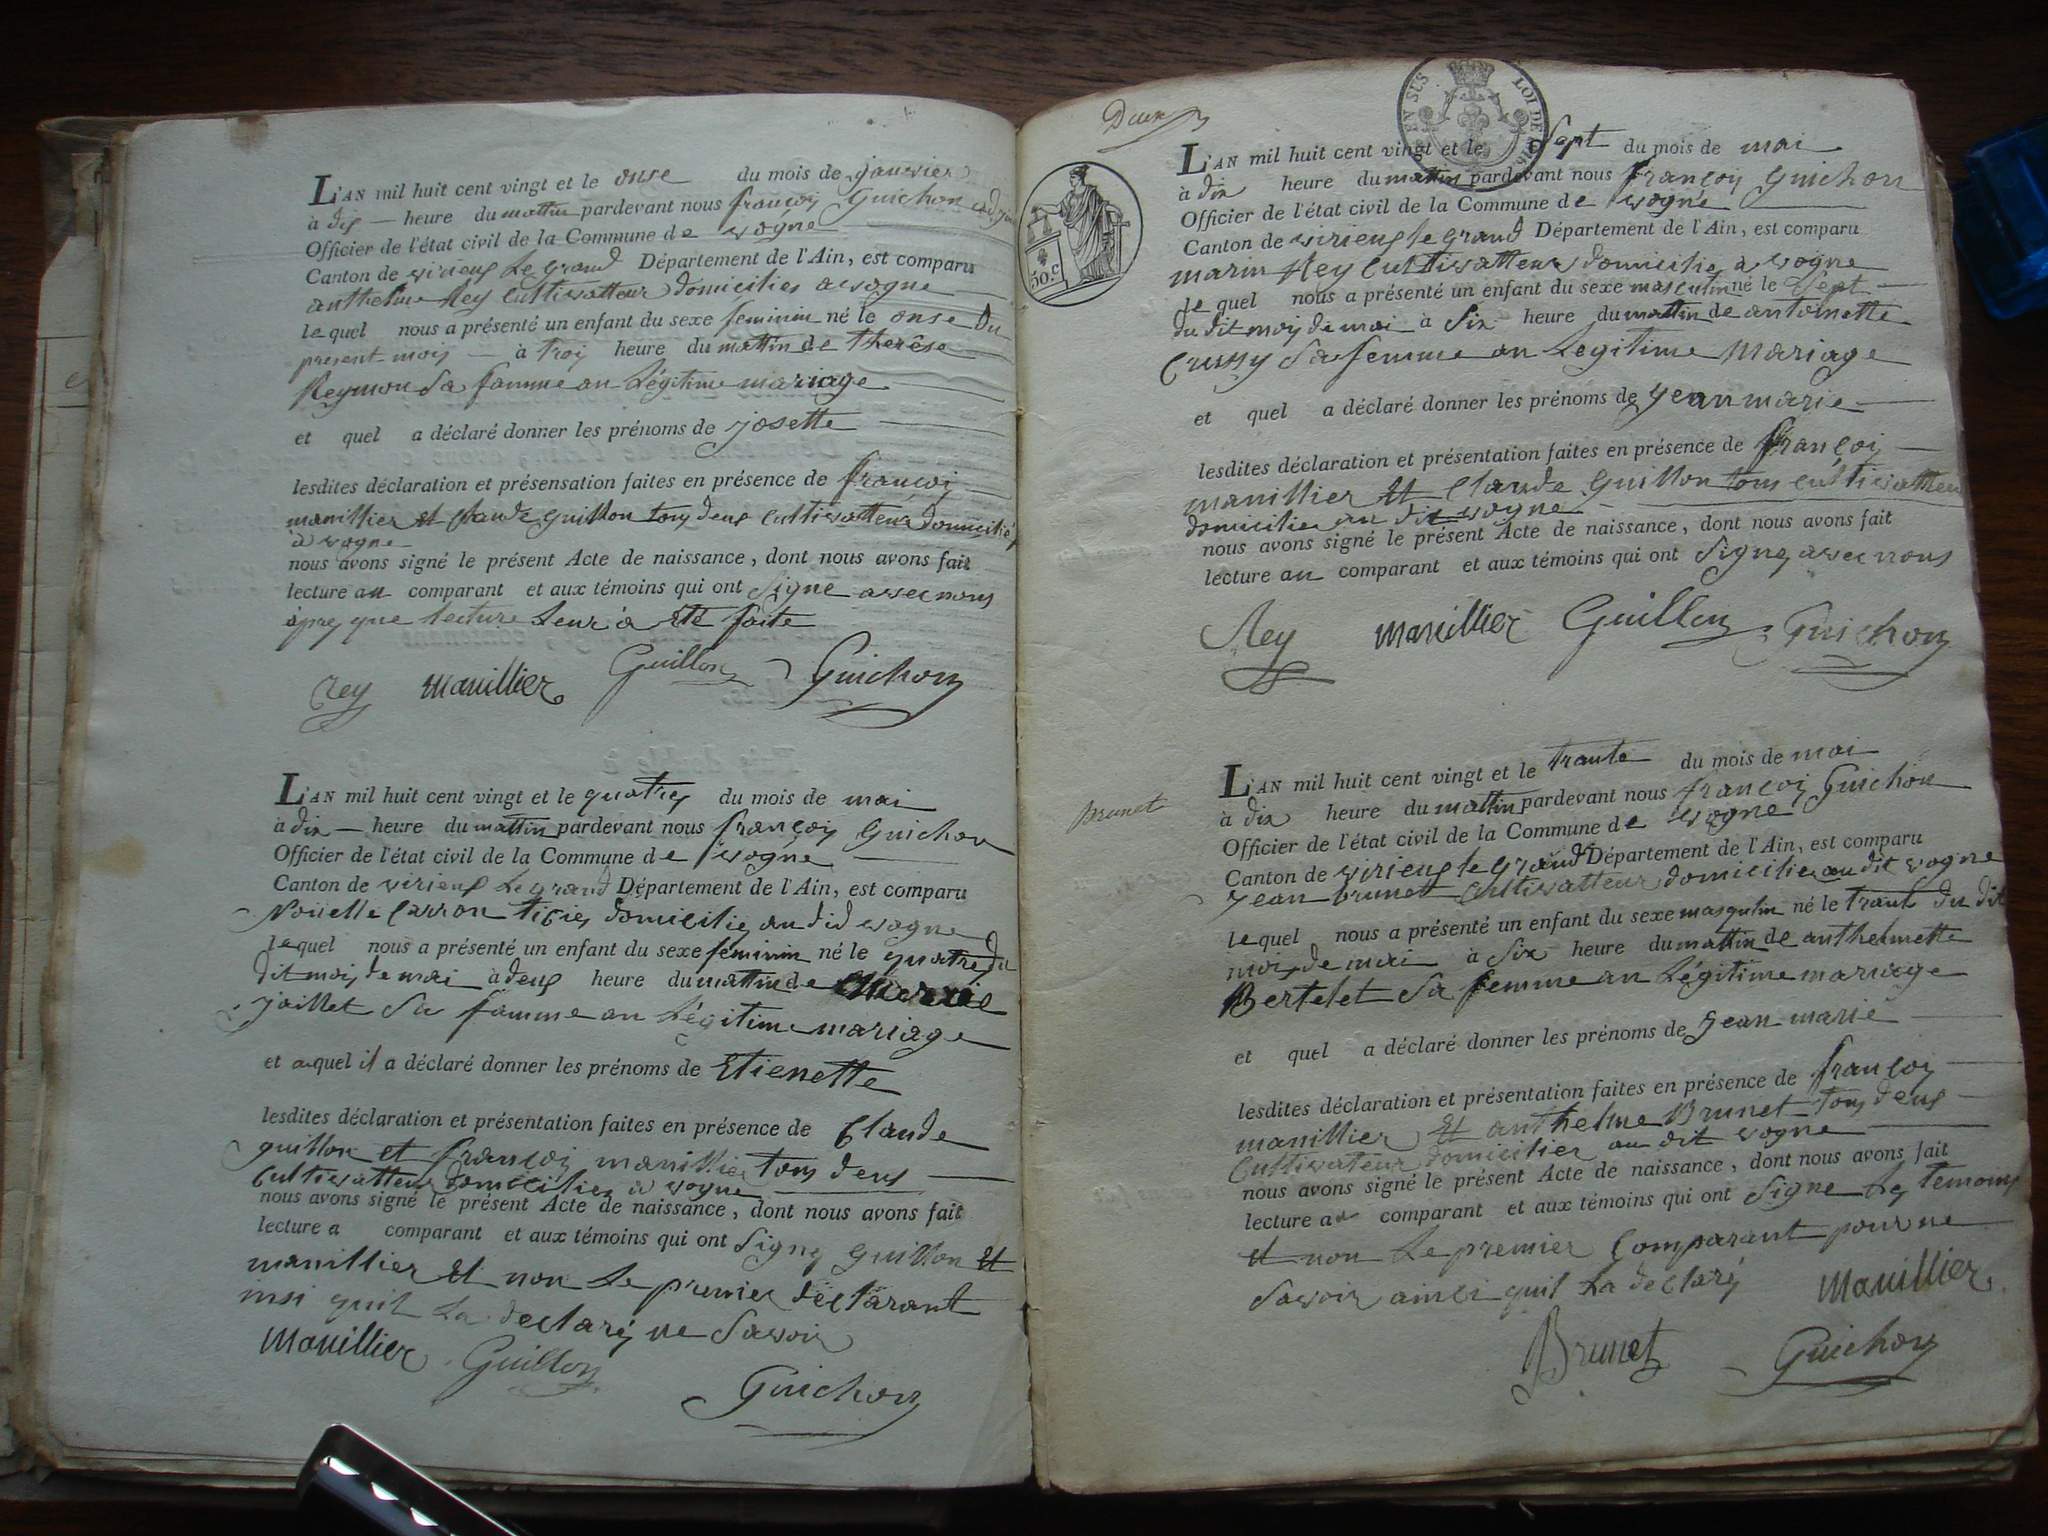 L'AN mil huit cent vingt et le onse du mois de janvier
à dis heure du mattin pardevant nous françois Guichon
Officier de l'état civil de la Commune de vogne
Canton de virieux Le grand Département de l'Ain, est comparu
anthelme Rey Cultivatteur domicilies a vogne
le quel nous a présenté un enfant du sexe feminin né le onse Du
present mois à trois heure du mattin de therese
Reymon Sa famme an Légitime mariage
et quel a déclaré donner les prénoms de josette
lesdites déclaration et présensation faites en présence de françois
manillier et Claude guillon tous deus Cultivatteur domicilié
à vogne
nous avons signé le présent Acte de naissance, dont nous avons fait
lecture au comparant et aux témoins qui ont Signe avec nous
àpres que lecture Leur à été faite
Rey manillier Guillon Guichon
L'AN mil huit cent vingt et le quatres du mois de mai
à dix heure du mattin pardevant nous françois Guichon
Officier de l'état civil de la Commune de vogne
Canton de virieux Le grand Département de l'Ain, est comparu
Nouelle Carron domicilie au did vogne
le quel nous a présenté un enfant du sexe feminin né le quatre du
dit mois de mai à deus heure du mattin de
jaillet Sa famme an Légitime mariage
et auquel il a déclaré donner les prénoms de Etienette
lesdites déclaration et présentation faites en présence de Claude
guillon et françois manillier tous deus
Cultivatteur domicilies à vogne
nous avons signé le présent Acte de naissance, dont nous avons fait
lecture a comparant et aux témoins qui ont Signe guillon Et
manillier Et non Le premier déclarant
insi quil La declaré ne Savoir
Manillier Guillon
Guichon
Deux
EN SUS LOI DE
50.c
L'AN mil huit cent vingt et le Sept du mois de mai
à dix heure du mattin pardevant nous françois Guichon
Officier de l'état civil de la Commune de vogne
Canton de virieus le grand Département de l'Ain, est comparu
marin Rey Cultivatteur domicilie a vogne
le quel nous a présenté un enfant du sexe masculin né le Sept
du dit mois de mai à Six heure du mattin de antoinette
Sa femme an Legitime Mariage
et quel a déclaré donner les prénoms de jean marie
lesdites déclaration et présentation faites en présence de françois
manillier Et Claude Guillon tous cultivatteur
domicilie au dit vogne
nous avons signé le présent Acte de naissance, dont nous avons fait
lecture au comparant et aux témoins qui ont Signe avec nous
Rey Manillier Guillon Guichon
Brunet
L'AN mil huit cent vingt et le trante du mois de mai
à dix heure du mattin pardevant nous françois Guichon
Officier de l'état civil de la Commune de vogne
Canton de virieus le grand Département de l'Ain, est comparu
jean brunet Cultivatteur domicilie au dit vogne
le quel nous a présenté un enfant du sexe masqulin né le trante du dit
mois de mai à Six heure du mattin de anthelmette
Bertelet Sa femme an Légitime mariage
et quel a déclaré donner les prénoms de jean marie
lesdites déclaration et présentation faites en présence de françois
manillier Et anthelme Brunet tous deus
Cultivateur domicilier au dit vogne
nous avons signé le présent Acte de naissance, dont nous avons fait
lecture au comparant et aux témoins qui ont Signe Les temoins
Et non Le premier Comparant pour ne
Savoir ainci quil La declaré Manillier
Brunet Guichon